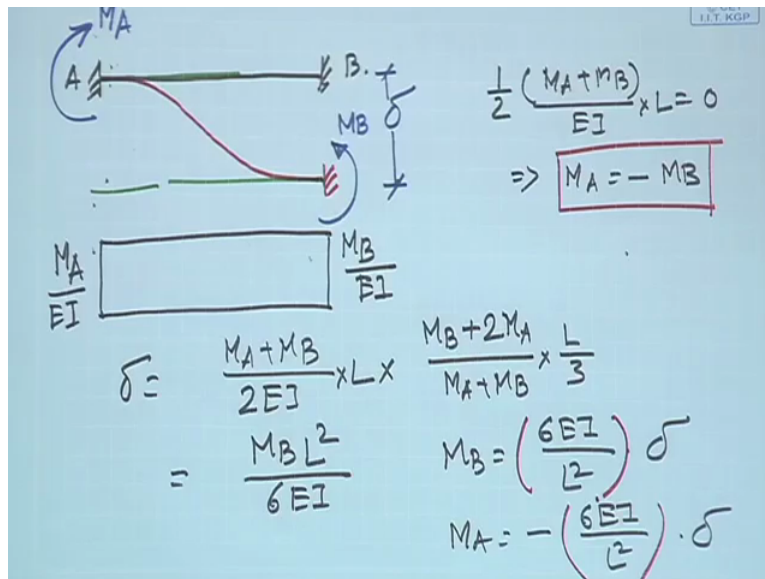 I.I.T. KGP
MA
A
B.
δ
MB
1/2 (MA+MB)/EI × L = 0
=> MA = - MB
MA/EI
MB/EI
δ = (MA+MB)/2EI × L × (MB+2MA)/(MA+MB) × L/3
= MBL²/6EI
MB = (6EI/L²) δ
MA = - (6EI/L²) . δ